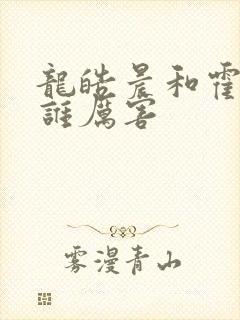 龍皓晨和霍
誰厲害
雾漫青山